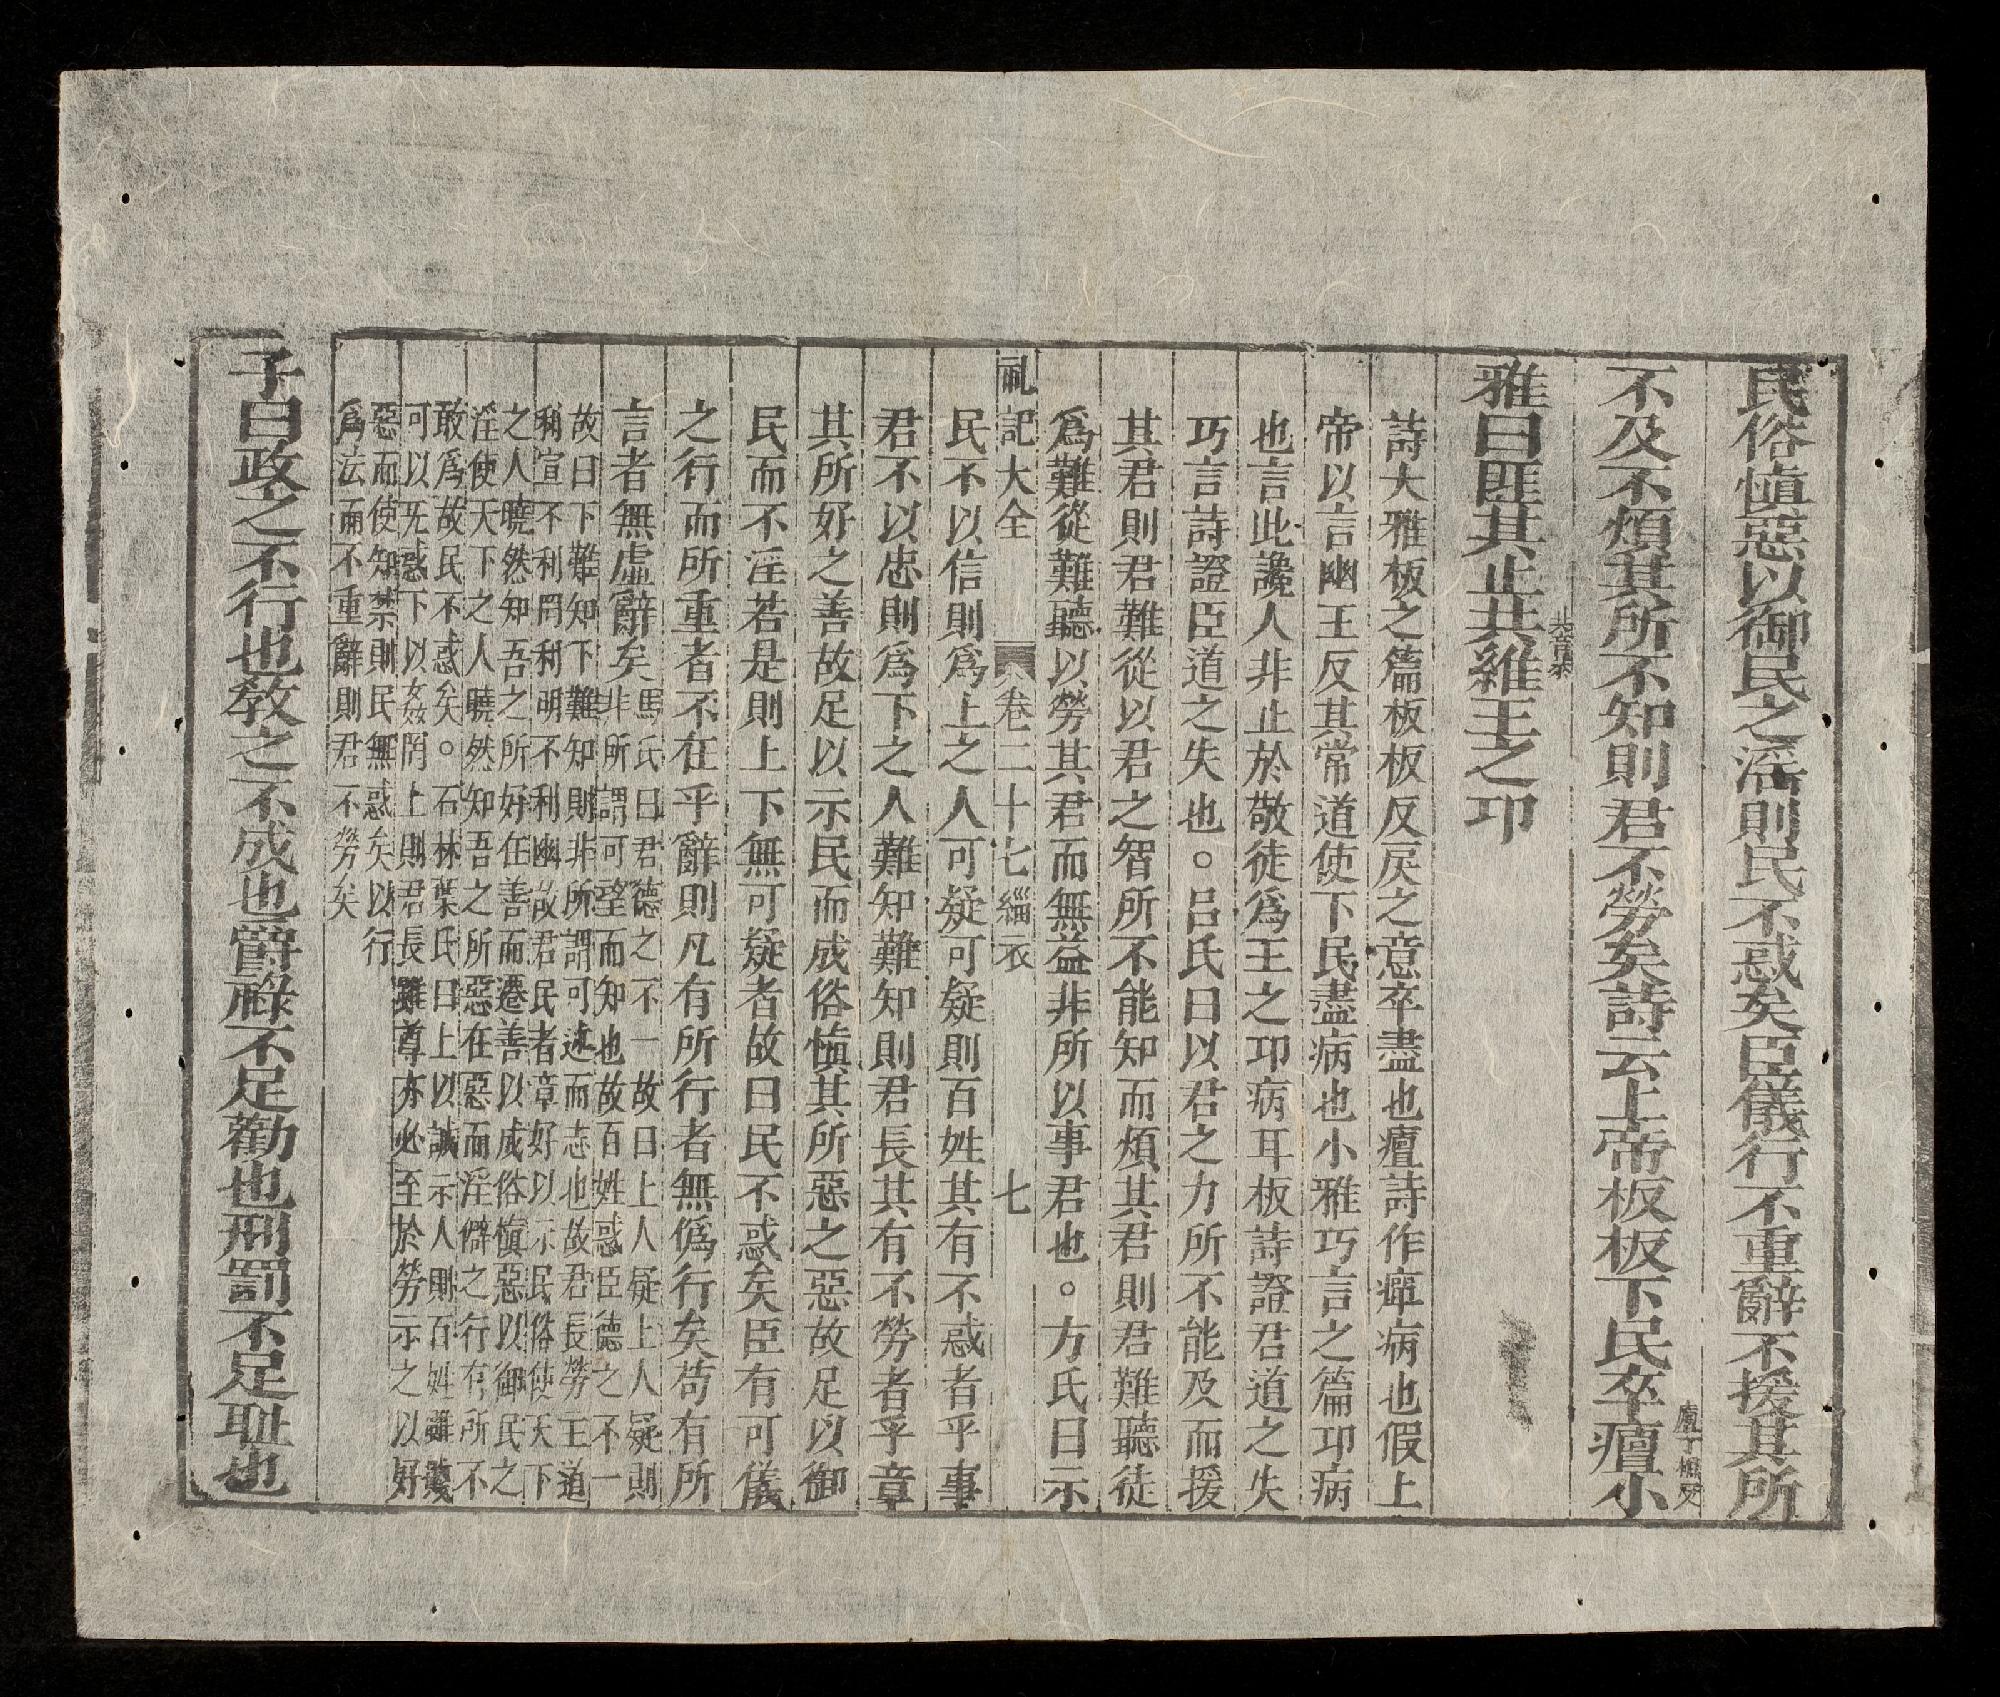 民俗愼惡以御民之淫則民不惑矣臣儀行不重辭不援其所
不及不煩其所不知則君不勞矣詩云上帝板板下民卒癉小
雅曰匪其止共維王之卭
共音恭
詩大雅板之篇板板反戾之意卒盡也癉詩作瘅病也假上
帝以言幽王反其常道使下民盡病也小雅巧言之篇卭病
也言此讒人非止於敬徒爲王之卭病耳板詩證君道之失
巧言詩證臣道之失也。呂氏曰以君之力所不能及而援
其君則君難從以君之智所不能知而煩其君則君難聽徒
爲難從難聽以勞其君而無益非所以事君也。方氏曰示
礼記大全 卷二十七緇衣 七
民不以信則爲上之人可疑可疑則百姓其有不惑者乎事
君不以忠則爲下之人難知難知則君長其有不勞者乎章
其所好之善故足以示民而成俗愼其所惡之惡故足以御
民而不淫若是則上下無可疑者故曰民不惑矣臣有可儀
之行而所重者不在乎辭則凡有所行者無僞行矣苟有所
言者無虛辭矣
馬氏曰君德之不一故曰上人疑上人疑則
非所謂可望而知也故百姓惑臣德之不一
故曰下難知下難知則非所謂可述而志也故君長勞王道
利宣不利罔利明不利幽故君民者章好以示民俗使天下
之人曉然知吾之所好在善而遷善以成俗愼惡以御民之
淫使天下之人曉然知吾之所惡在惡而淫僻之行有所不
敢爲故民不惑矣。石林葉氏曰上以誠示人則百姓雖賤
可以无惑下以姦罔上則君長雖尊亦必至於勞示之以好
惡而使知禁則民無惑矣以行
爲法而不重辭則君不勞矣
子曰政之不行也敎之不成也爵祿不足勸也刑罰不足耻也